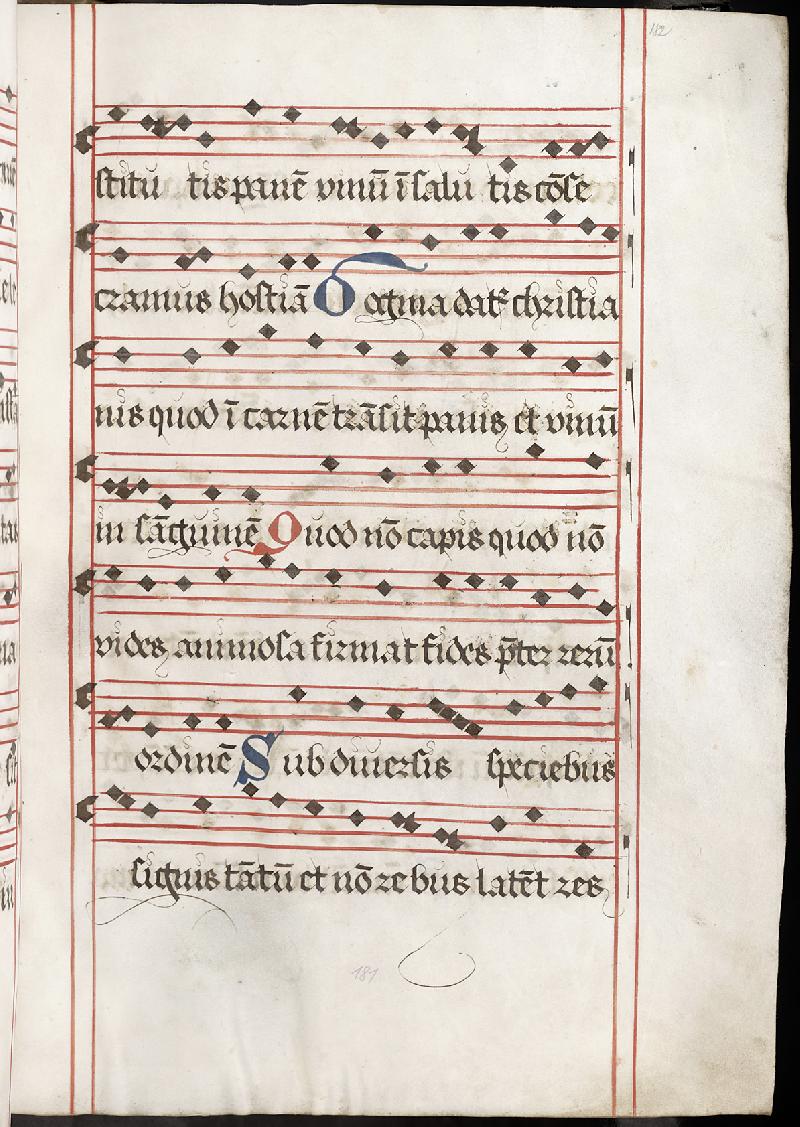 182
stitu tis panē vinū ī salu tis cōse
cramus hostiā Dogma datr christia
nis quod ī carnē trāsit panis et vinū
in sāguinē Quod nō capis quod nō
vides animosa firmat fides p̄ter rerū
ordinē Sub diuersis speciebus
signis tātū et nō rebus latēt res
181